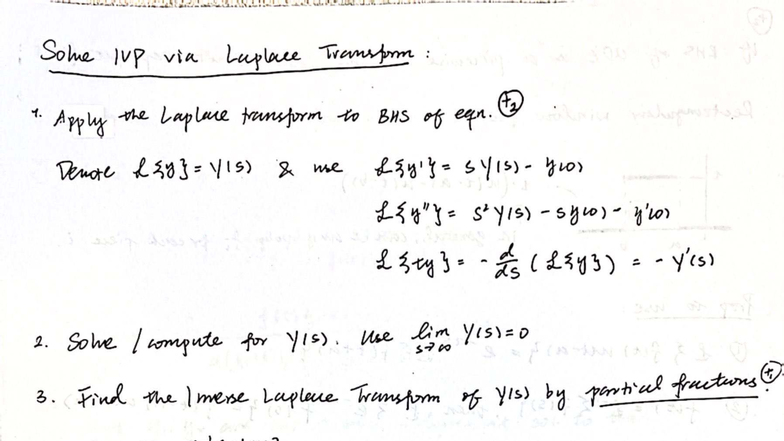 Solve IVP via Laplace Transform :
1. Apply the Laplace transform to BHS of eqn. +2
Denote ℒ{y} = Y(s) & use ℒ{y'} = sY(s) - y(0)
ℒ{y''} = s²Y(s) - sy(0) - y'(0)
ℒ{ty} = - d/ds (ℒ{y}) = - Y'(s)
2. Solve / compute for Y(s). Use lim s→∞ Y(s) = 0
3. Find the Inverse Laplace Transform of Y(s) by partial fractions